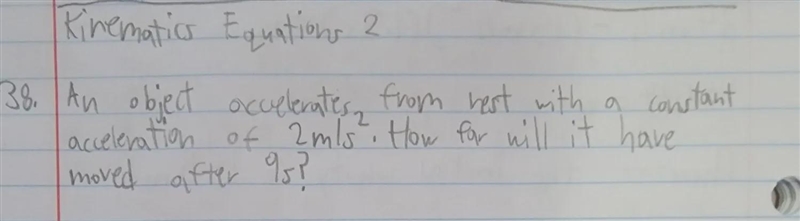 Kinematics Equations 2
38. An object accelerates from rest with a constant
acceleration of 2m/s². How far will it have
moved after 9s?